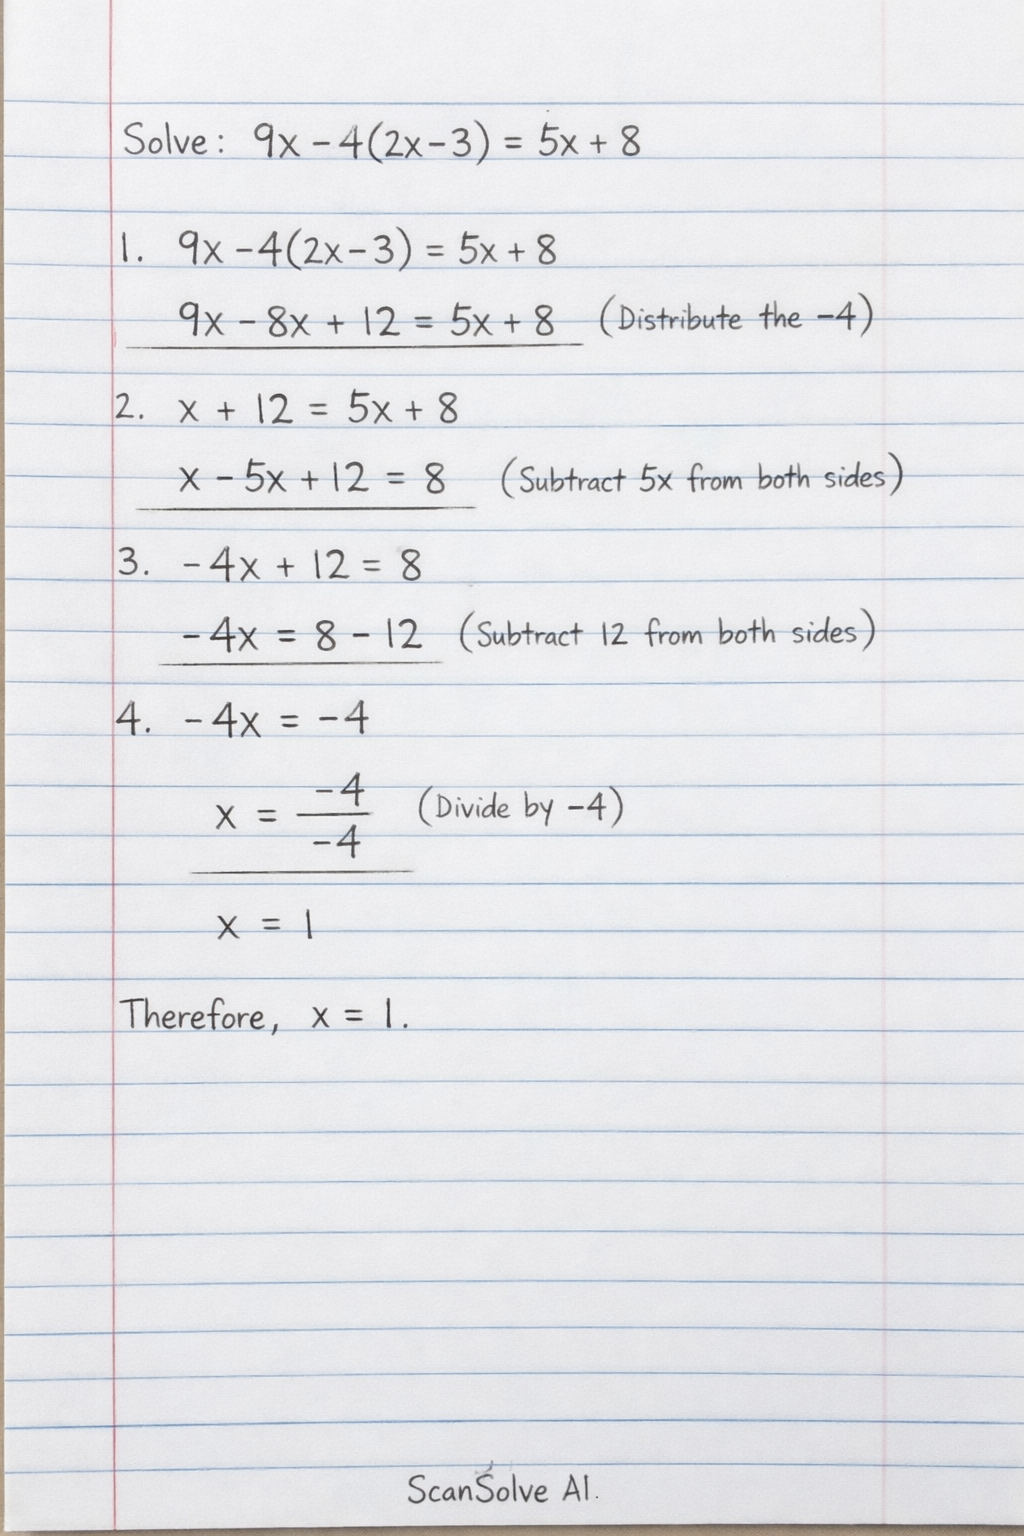 Solve: 9x - 4(2x - 3) = 5x + 8
1. 9x - 4(2x - 3) = 5x + 8
9x - 8x + 12 = 5x + 8 (Distribute the -4)
2. x + 12 = 5x + 8
x - 5x + 12 = 8 (Subtract 5x from both sides)
3. -4x + 12 = 8
-4x = 8 - 12 (Subtract 12 from both sides)
4. -4x = -4
x = -4/-4 (Divide by -4)
x = 1
Therefore, x = 1.
ScanSolve AI.